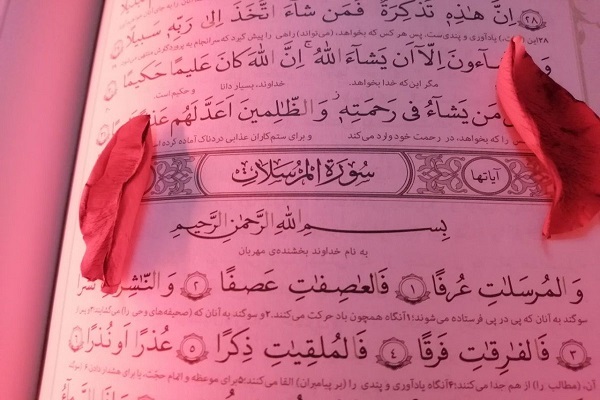 إِنَّ هَذِهِ تَذْكِرَةٌ فَمَن شَاءَ اتَّخَذَ إِلَى رَبِّهِ سَبِيلًا
يادآوری و پندی‌ست. پس هر کس که بخواهد، (می‌تواند) راهی را پیش گیرد که سرانجام به
إِلَّا أَن يَشَاءَ اللهُ إِنَّ اللهَ كَانَ عَلِيمًا حَكِيمًا
مگر این‌که خدا بخواهد. خداوند، بسیار دانا و حکیم است.
مَن يَشَاءُ فِي رَحْمَتِهِ وَالظَّالِمِينَ أَعَدَّ لَهُمْ
را که بخواهد، در رحمت خود وارد می‌کند و برای ستم‌کاران عذابی دردناک آماده کرده
آیاتها سُورَةُ الْمُرْسَلَات
بِسْمِ اللهِ الرَّحْمَنِ الرَّحِيمِ
به نام خداوند بخشنده‌ی مهربان
وَالْمُرْسَلَاتِ عُرْفًا ١ فَالْعَاصِفَاتِ عَصْفًا ٢ وَالنَّاشِرَاتِ
سوگند به آنان که پی در پی فرستاده می‌شوند؛ ۱ آنگاه همچون باد حرکت می‌کنند. ۲ و سوگند به آنان که (صحیفه‌های وحی را) می‌گشایند؛
٣ فَالْفَارِقَاتِ فَرْقًا ٤ فَالْمُلْقِيَاتِ ذِكْرًا ٥ عُذْرًا أَوْ نُذْرًا
آن، (مطالب را) از هم جدا می‌کنند؛ ۴ آنگاه یادآوری و پندی را (بر پیامبران) القا می‌کنند؛ ۵ برای موعظه و اتمام حجّت، یا برای هشدار دادن.